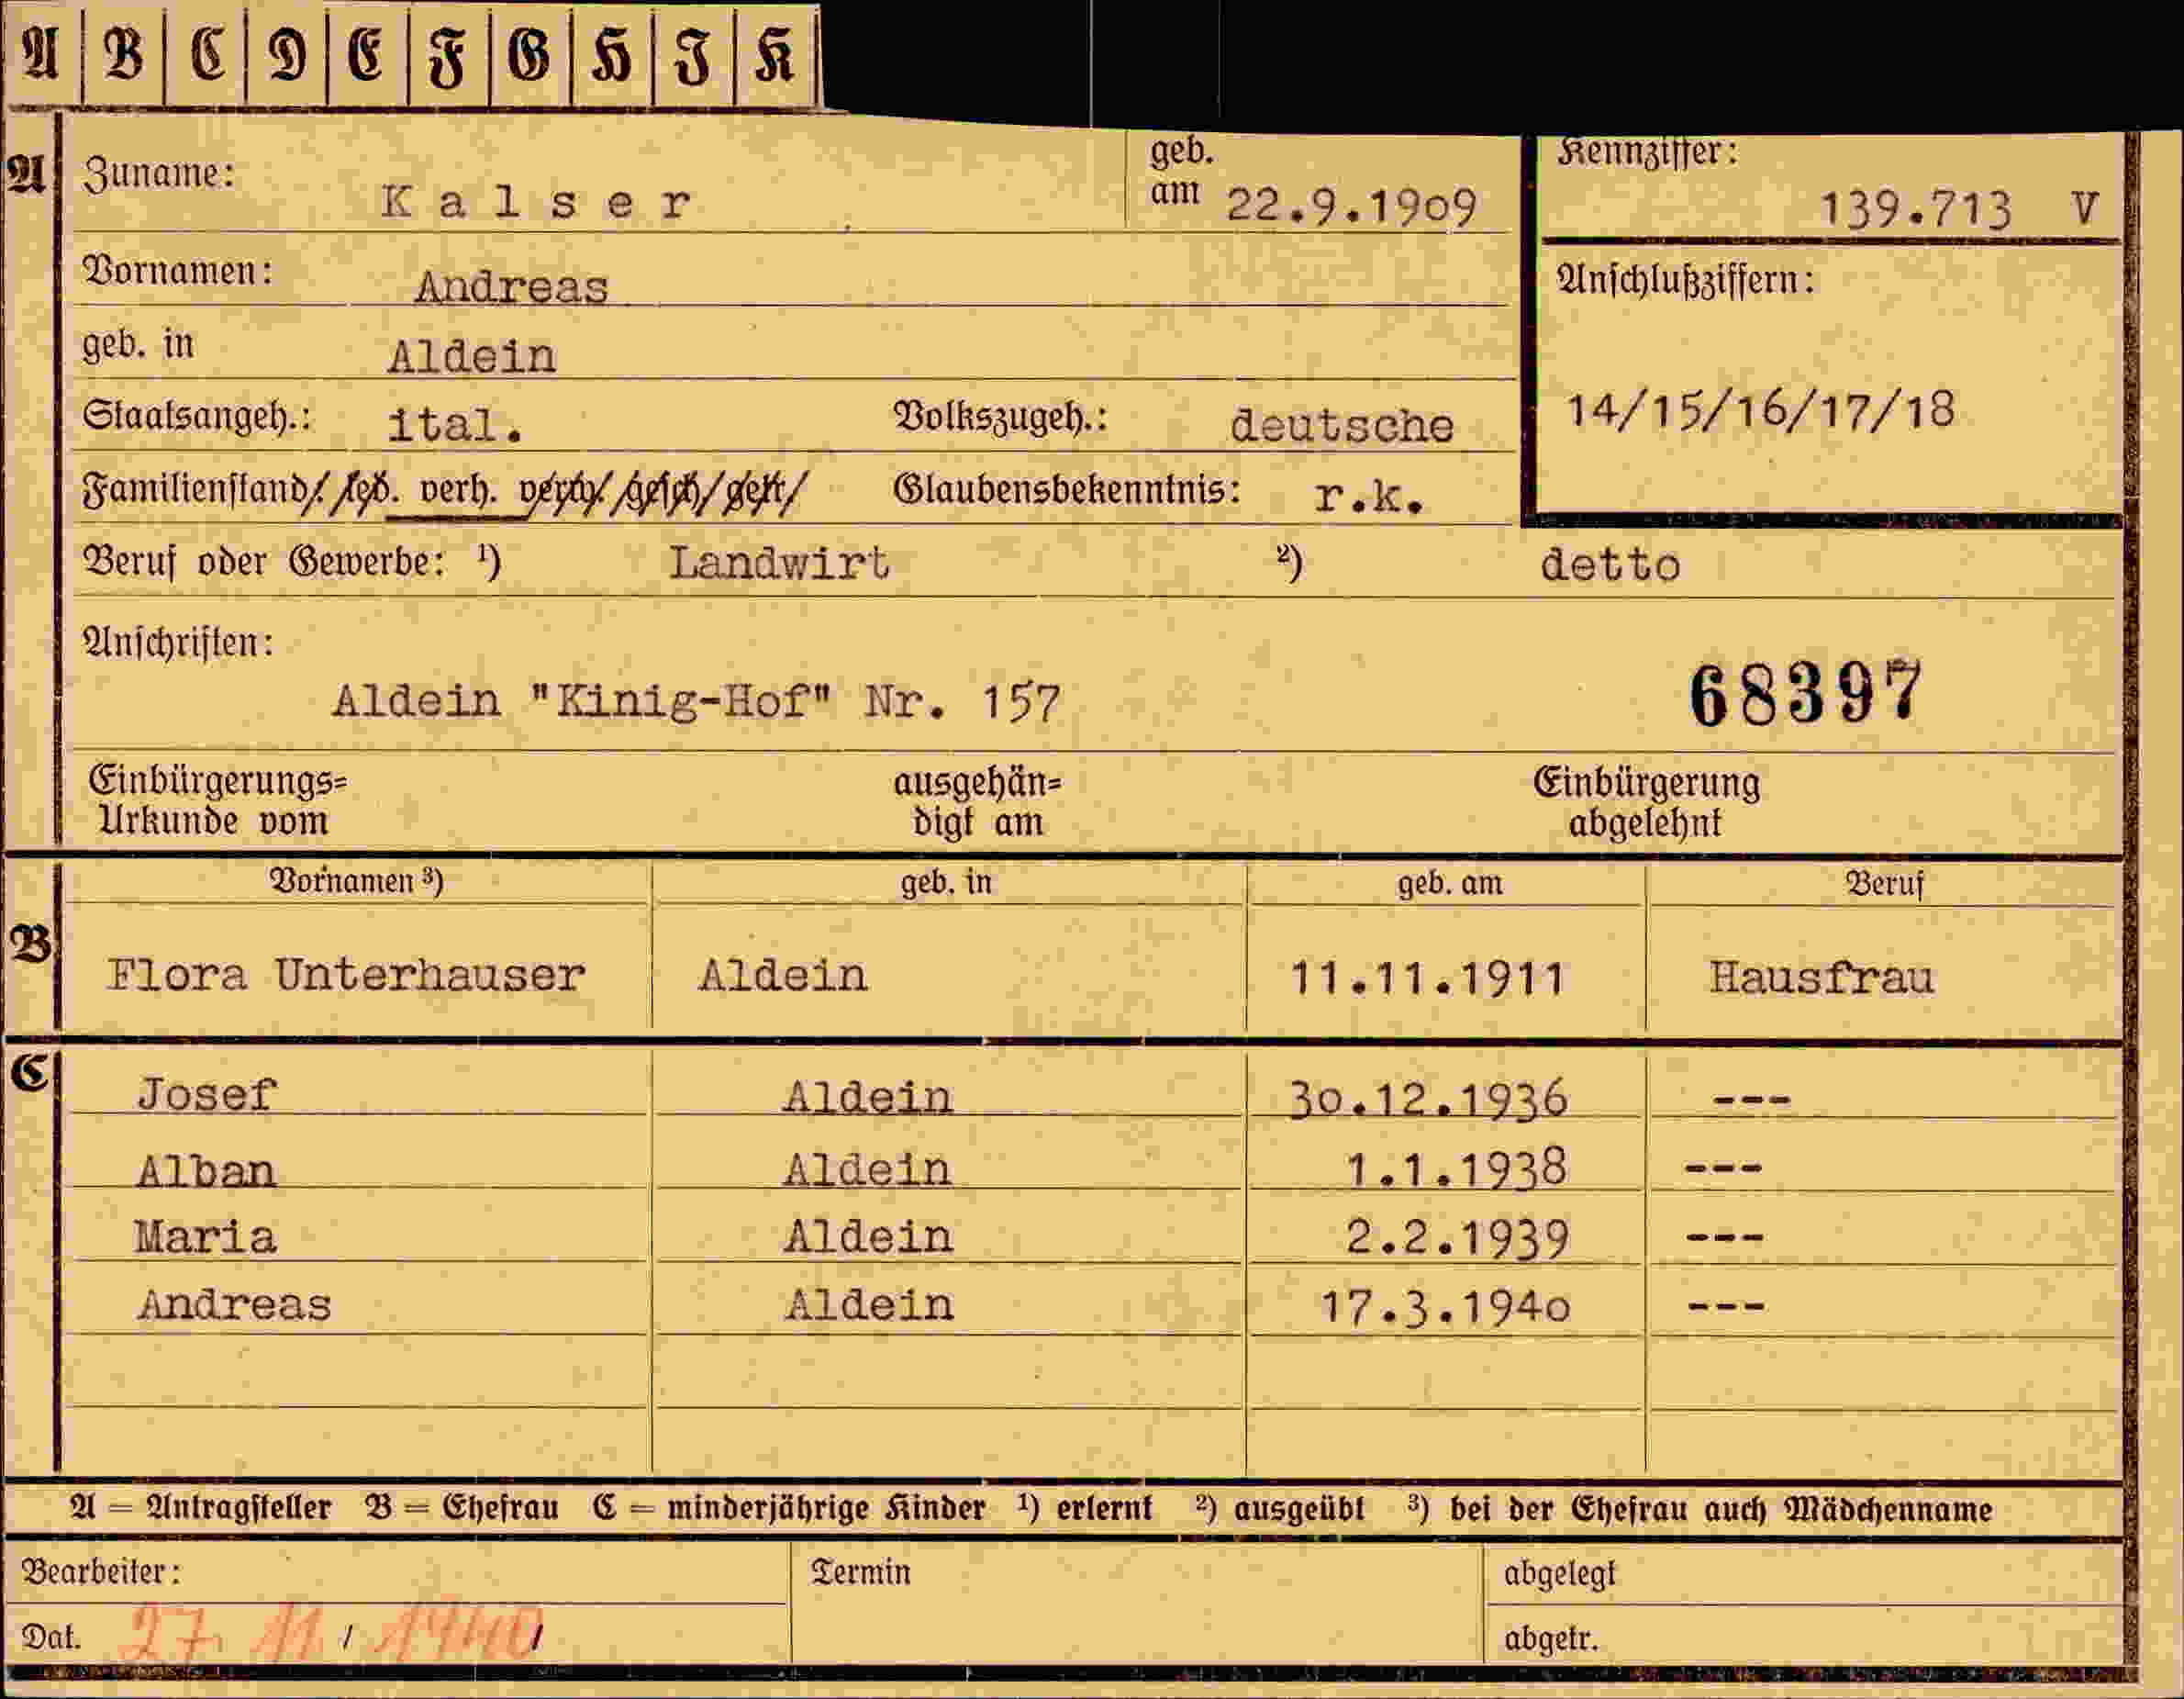 A B C D E F G H I K
A Zuname: Kalser geb. am 22.9.1909 Kennziffer: 139.713 V
Vornamen: Andreas Anschlußziffern:
geb. in Aldein
Staatsangeh.: ital. Volkszugeh.: deutsche 14/15/16/17/18
Familienstand led. verh. verw. gesch. getr. Glaubensbekenntnis: r.k.
Beruf oder Gewerbe: ¹) Landwirt ²) detto
Anschriften:
Aldein "Kinig-Hof" Nr. 157 68397
Einbürgerungs= ausgehän= Einbürgerung
Urkunde vom digt am abgelehnt
Vornamen ³) geb. in geb. am Beruf
B Flora Unterhauser Aldein 11.11.1911 Hausfrau
C Josef Aldein 30.12.1936 ---
Alban Aldein 1.1.1938 ---
Maria Aldein 2.2.1939 ---
Andreas Aldein 17.3.1940 ---
A = Antragsteller B = Ehefrau C = minderjährige Kinder ¹) erlernt ²) ausgeübt ³) bei der Ehefrau auch Mädchenname
Bearbeiter: Termin abgelegt
Dat. 27. 11. / 1940 / abgetr.